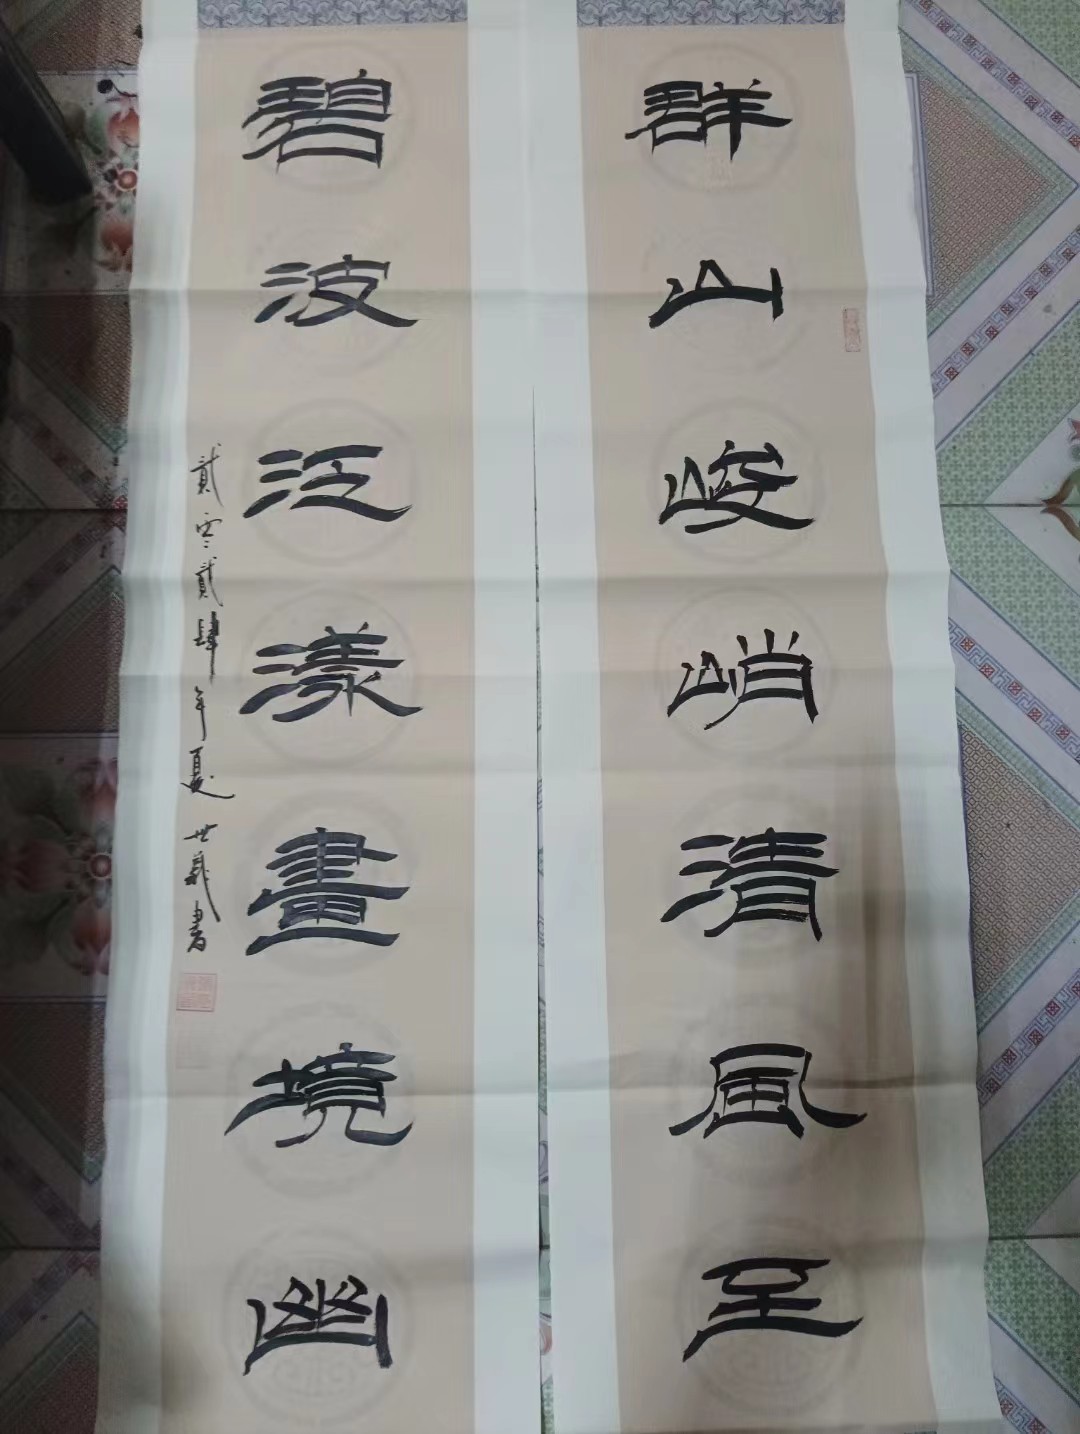 群山峻峭清風至
碧波泛漾畫境幽
貳零貳肆年夏世義書